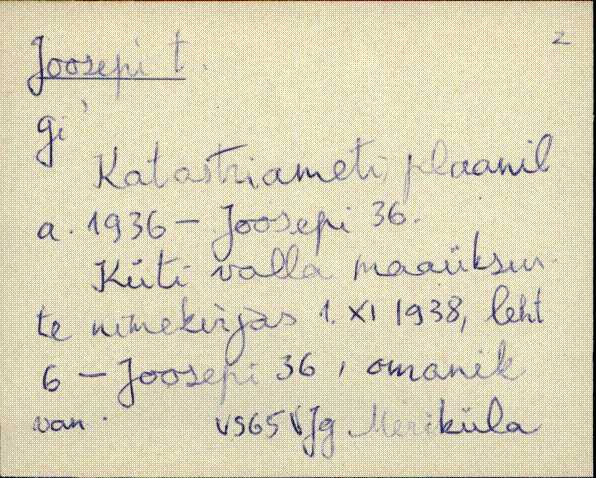 2
Joosepi t.
gi'
Katastriameti plaanil
a. 1936 – Joosepi 36.
Küti valla maaüksus-
te nimekirjas 1. XI 1938, leht
6 – Joosepi 36, omanik
van. VS65 VJg Meriküla